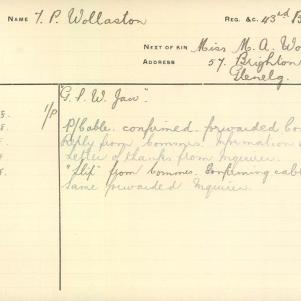 NAME T. P. Wollaston REG. &C. 43rd B
NEXT OF KIN Miss M. A. Wo
ADDRESS 57, Brighton
Glenelg.
G.S.W. Jaw".
8. 1/P P/Cable. confirmed. forwarded Co
8. Reply from Commes. Information
Letter of thanks from Inquirer.
8. "Slip" from Commes. Confirming cabl
same forwarded Inquirer.